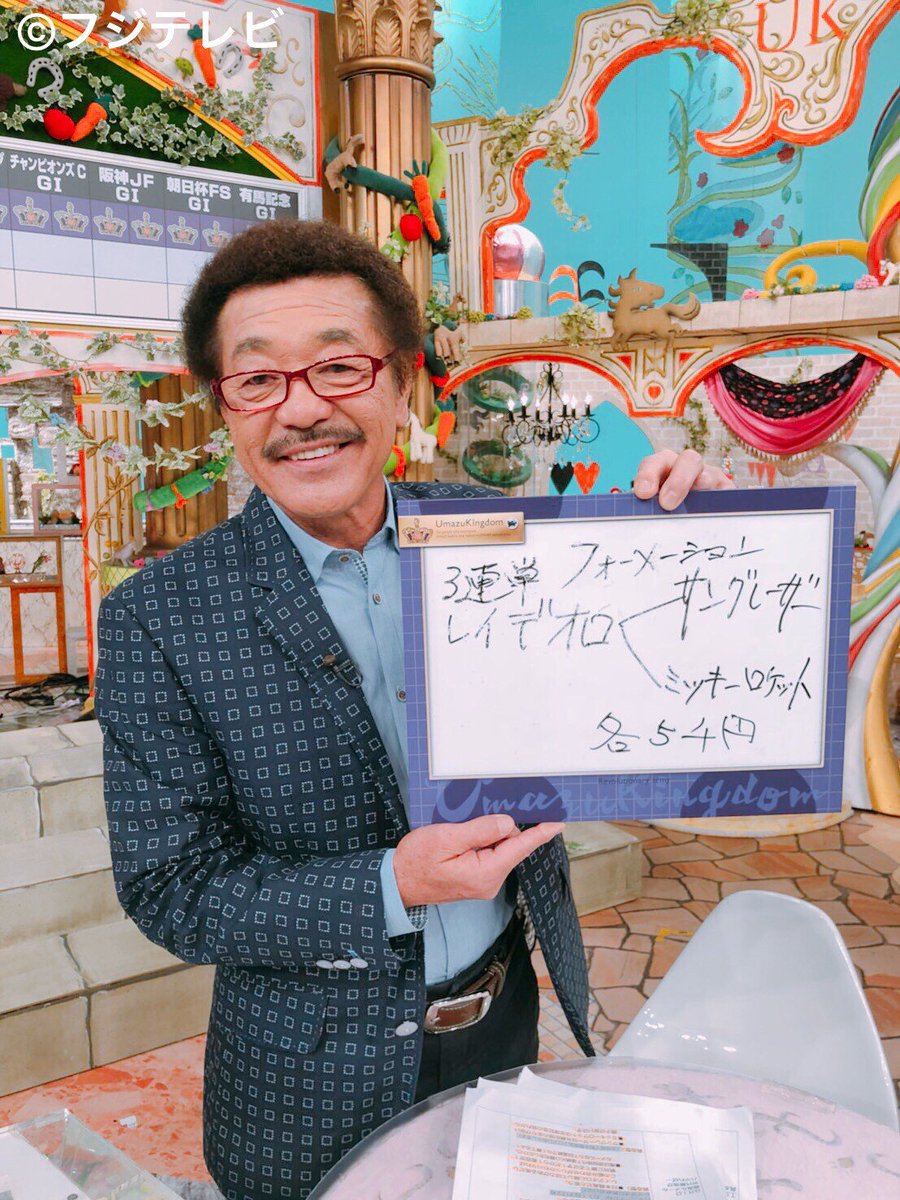 ©フジテレビ
UK
チャンピオンズC
GI
阪神JF
GI
朝日杯FS
GI
有馬記念
GI
UmazuKingdom
3連単 フォーメーション
レイデオロ
サングレーザー
ミッキーロケット
各5千円
UmazuKingdom